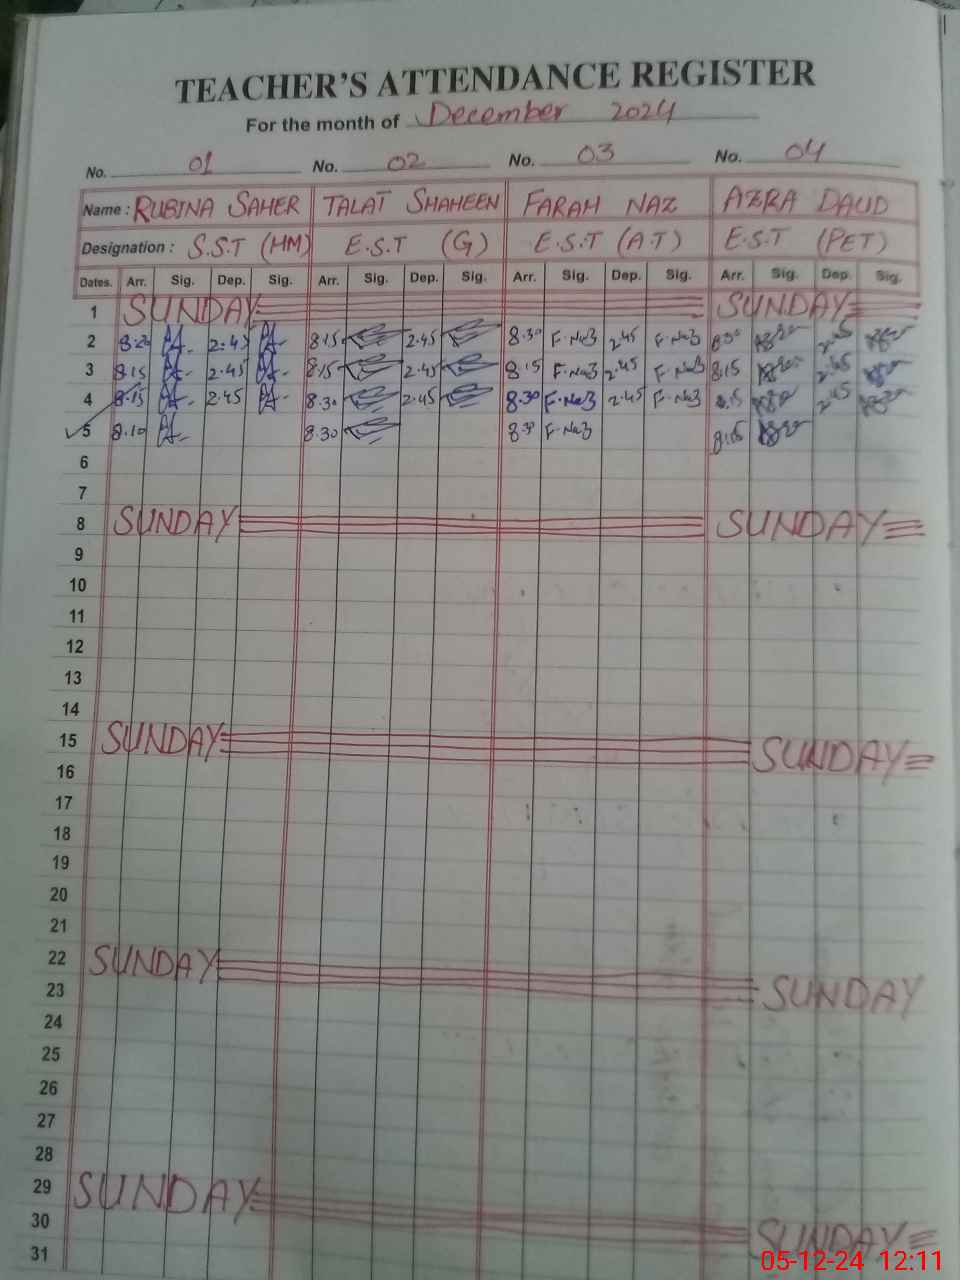 TEACHER'S ATTENDANCE REGISTER
For the month of December 2024
No. 01 No. 02 No. 03 No. 04
Name : RUBINA SAHER TALAT SHAHEEN FARAH NAZ AZRA DAUD
Designation : S.S.T (HM) E.S.T (G) E.S.T (A.T) E.S.T (PET)
Dates. Arr. Sig. Dep. Sig. Arr. Sig. Dep. Sig. Arr. Sig. Dep. Sig. Arr. Sig. Dep. Sig.
1 SUNDAY SUNDAY
2 8.20 2.45 8.15 2.45 8.30 F.Naz 2.45 F.Naz 8.30 2.45
3 8.15 2.45 8.15 2.45 8.15 F.Naz 2.45 F.Naz 8.15 2.45
4 8.15 2.45 8.30 2.45 8.30 F.Naz 2.45 F.Naz 8.15 2.45
5 8.10 8.30 8.30 F.Naz 8.15
6
7
8 SUNDAY SUNDAY
9
10
11
12
13
14
15 SUNDAY SUNDAY
16
17
18
19
20
21
22 SUNDAY
23 SUNDAY
24
25
26
27
28
29 SUNDAY
30 SUNDAY
31
05-12-24 12:11